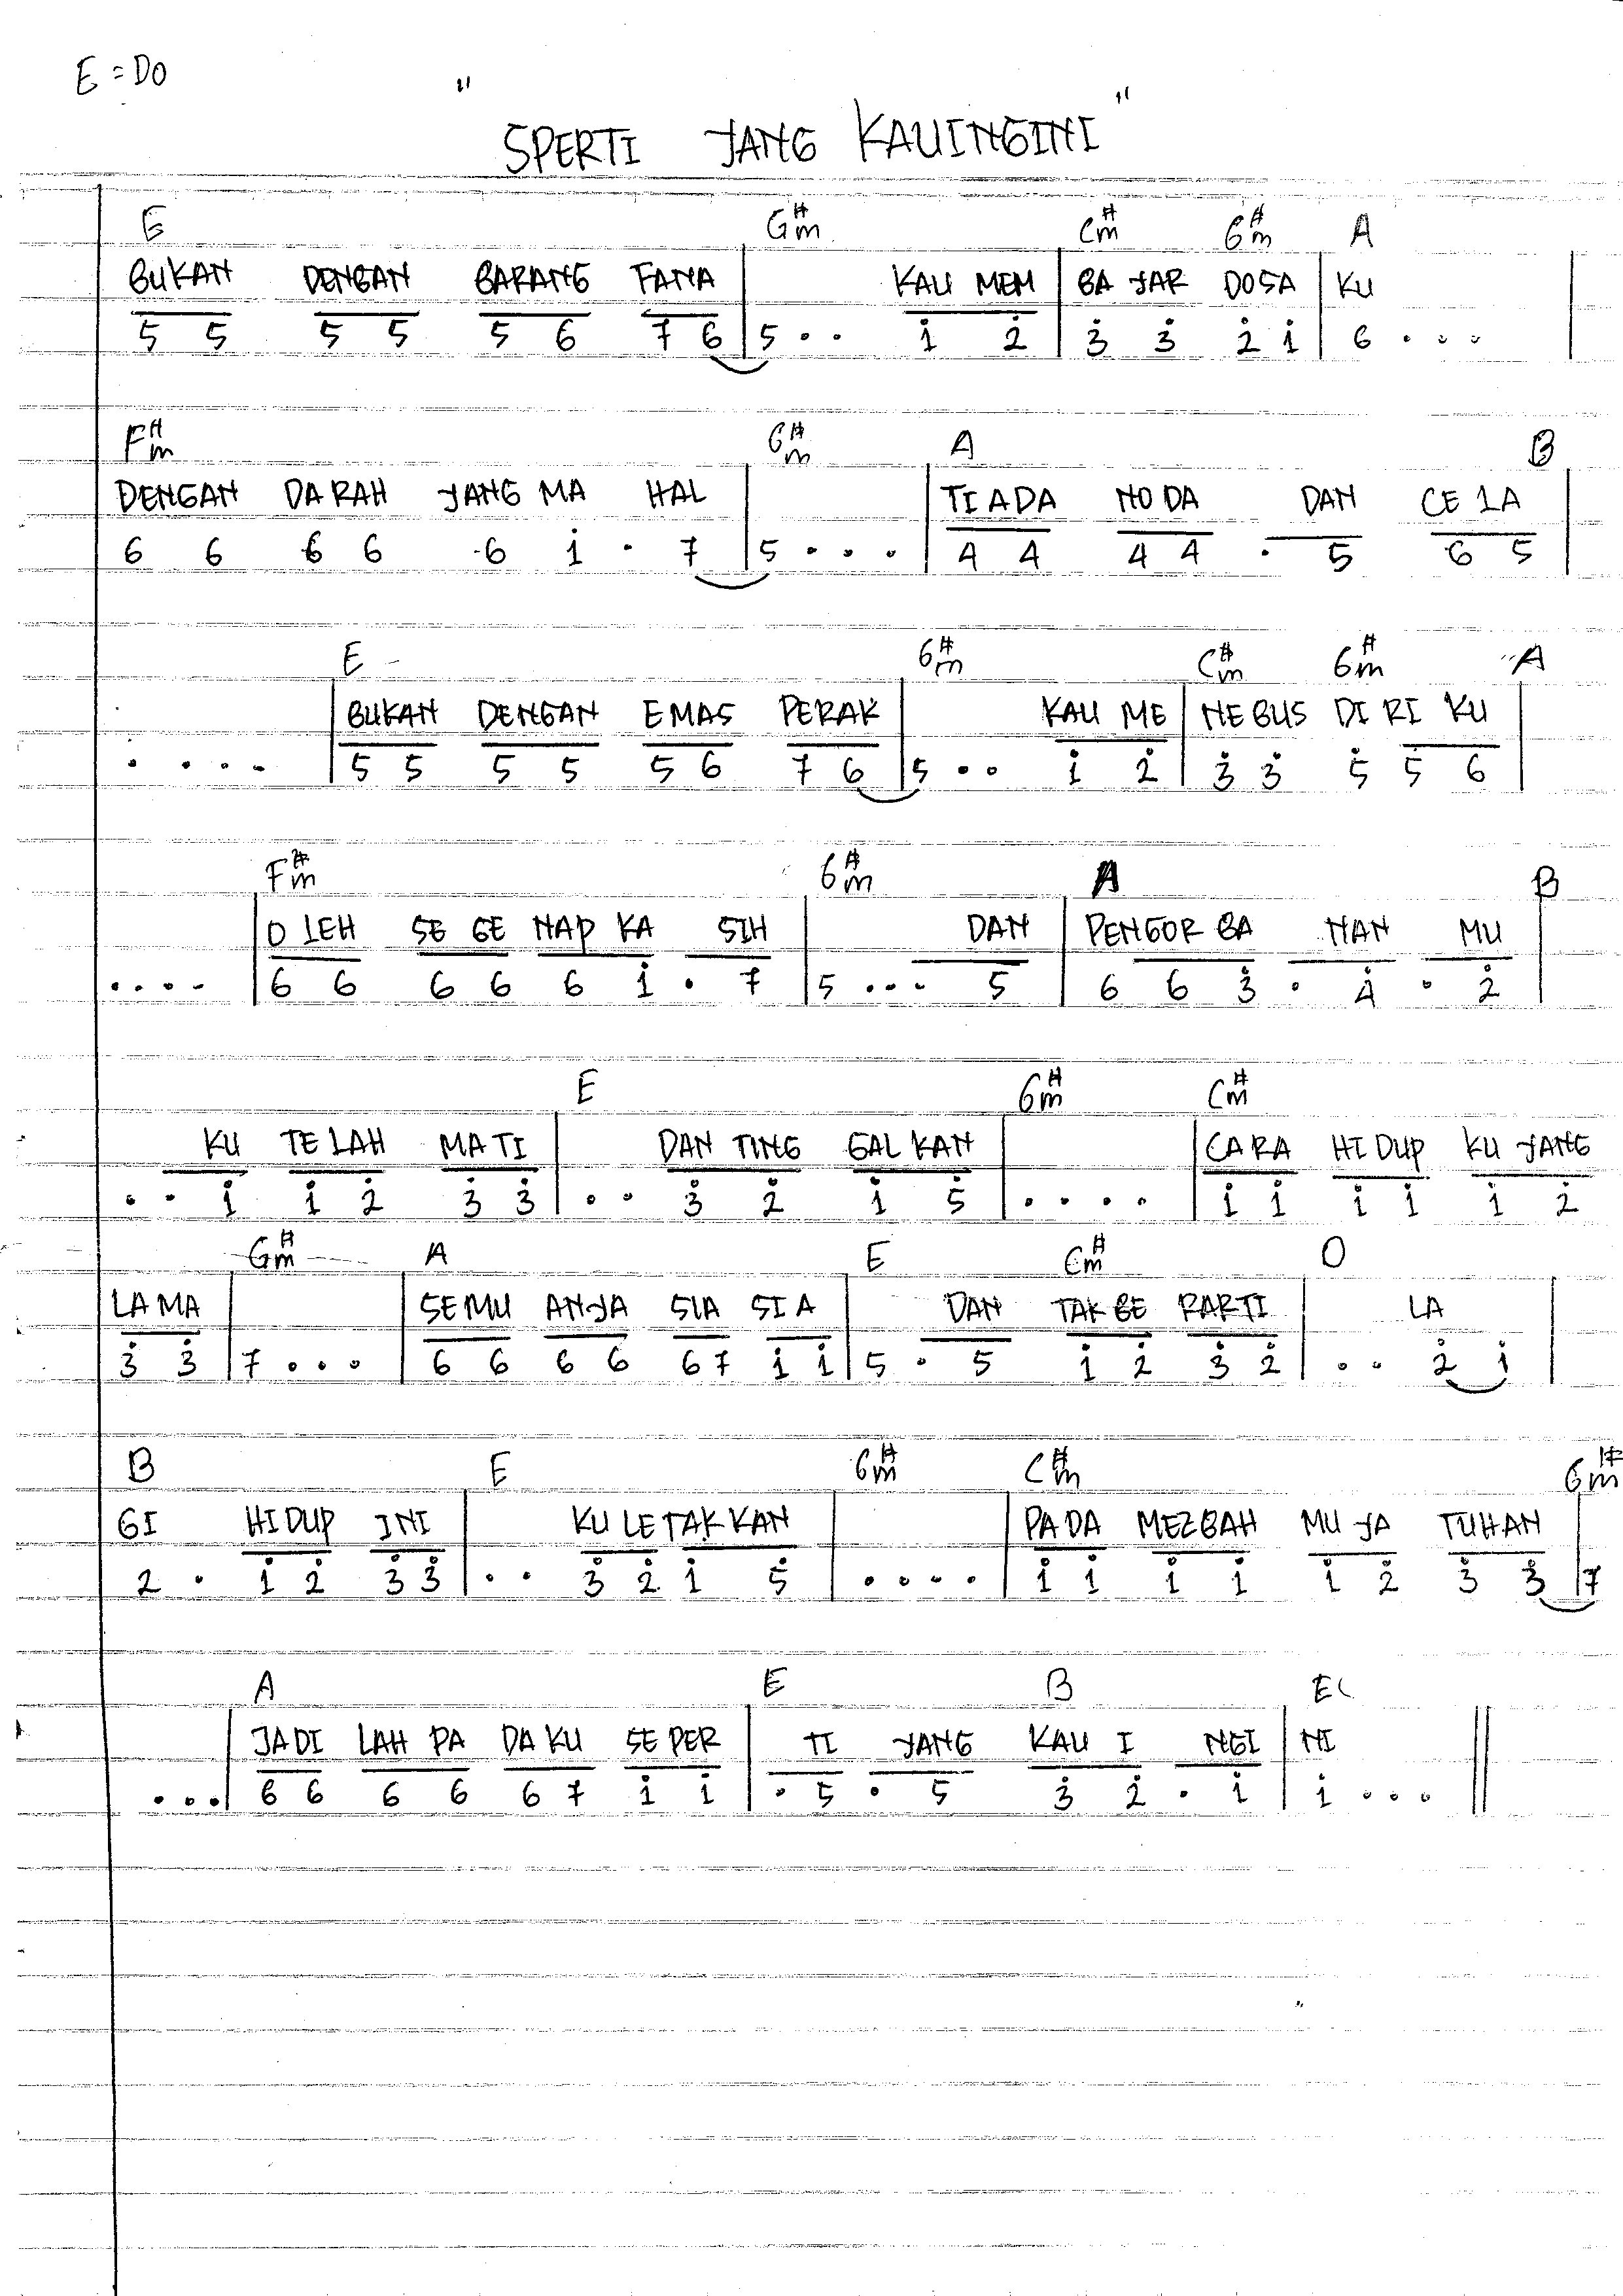 E = DO
" SPERTI YANG KAUINGINI "
E G#m C#m G#m A
BUKAN DENGAN BARANG FANA | KAU MEM | BA YAR DOSA | KU |
5 5 5 5 5 6 7 6 | 5 . . 1̇ 2̇ | 3̇ 3̇ 2̇ 1̇ | 6 . . . |
F#m G#m A B
DENGAN DA RAH YANG MA HAL | | TI ADA NO DA DAN CE LA |
6 6 6 6 6 1̇ . 7 | 5 . . . | 4 4 4 4 . 5 6 5 |
E G#m C#m G#m A
| BUKAN DENGAN E MAS PERAK | KAU ME | NE BUS DI RI KU |
. . . . | 5 5 5 5 5 6 7 6 | 5 . . 1̇ 2̇ | 3̇ 3̇ 5̇ 5 6 |
F#m G#m A B
| O LEH SE GE NAP KA SIH | DAN | PENGOR BA NAN MU |
. . . . | 6 6 6 6 6 1̇ . 7 | 5 . . . 5 | 6 6 3̇ . 4̇ . 2̇ |
E G#m C#m
KU TE LAH MA TI | DAN TING GAL KAN | | CARA HI DUP KU YANG
. . 1̇ 1̇ 2̇ 3̇ 3̇ | . . 3̇ 2̇ 1̇ 5̇ | . . . . | 1̇ 1̇ 1̇ 1̇ 1̇ 2̇
G#m A E C#m D
LA MA | | SEMU ANYA SIA SI A | DAN TAK BE RARTI | LA |
3̇ 3̇ | 7 . . . | 6 6 6 6 6 7 1̇ 1̇ | 5 . 5 1̇ 2̇ 3̇ 2̇ | . . 2̇ 1̇ |
B E G#m C#m G#m
GI HI DUP INI | KU LE TAK KAN | | PA DA MEZBAH MU YA TUHAN |
2 . 1̇ 2̇ 3̇ 3̇ | . . 3̇ 2̇ 1̇ 5̇ | . . . . | 1̇ 1̇ 1̇ 1̇ 1̇ 2̇ 3̇ 3̇ | 7
A E B E
| JADI LAH PA DA KU SE PER | TI YANG KAU I NGI | NI ||
. . . | 6 6 6 6 6 7 1̇ 1̇ | . 5 . 5 3̇ 2̇ . 1̇ | 1̇ . . . ||